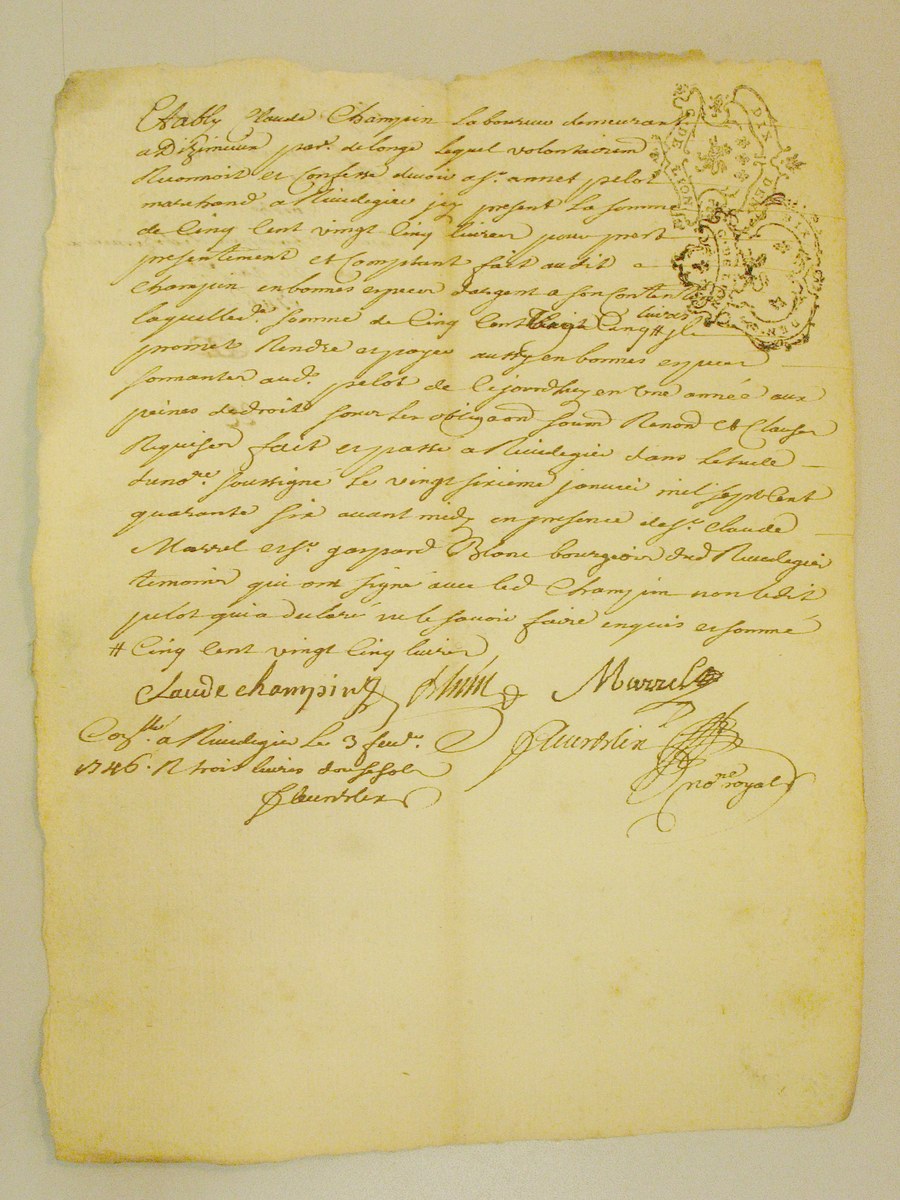 Etably Claude Champin laboureur demeurant
a Dizimieux par. de longe lequel volontairem
Reconnoit et Confesse devoir a sr. annet pelot
marchand a Rivedegier jcy present La somme
de Cinq Cent vingt Cinq livres pour prest
presentement et Comptant fait audit
Champin en bonnes especes d'argent a son Content
laquelle d. somme de Cinq Cent vingt Cinq # livres jl
promet Rendre et payer aussy en bonnes especes
sonantes aud. pelot de Cejourdhuy en Une année aux
peines de droit sous les obligaon soum Renon Et Clauses
Requises fait et passé a Rivedegier dans letude
du nore. soussigné Le vingt sixieme janvier mil sept Cent
quarante six avant midy en presence de sr. Claude
Marrel et sr. gaspard Blanc bourgeois dud Rivedegier
temoins qui ont signé avec led Champin non ledit
pelot qui a declaré ne le savoir faire enquis et sommé
# Cinq Cent vingt Cinq livres
Claude champin Marrel
Conllé a Rivedegier Le 3 fevr. fleurdelix
1746. R trois livres douse sols nore royal
fleurdelix
G. DE LION
DIX DEN